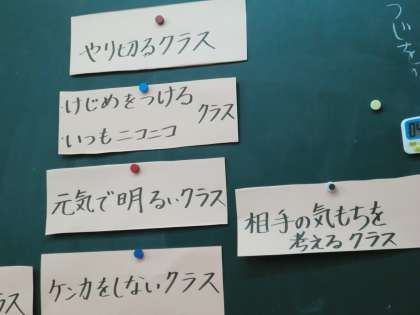 やり切るクラス
・けじめをつける
・いつもニコニコ
クラス
元気で明るいクラス
相手の気もちを
考えるクラス
ケンカをしないクラス
ラス